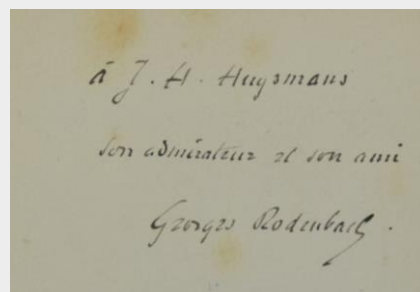 à J. H. Huysmans
son admirateur et son ami
Georges Rodenbach.